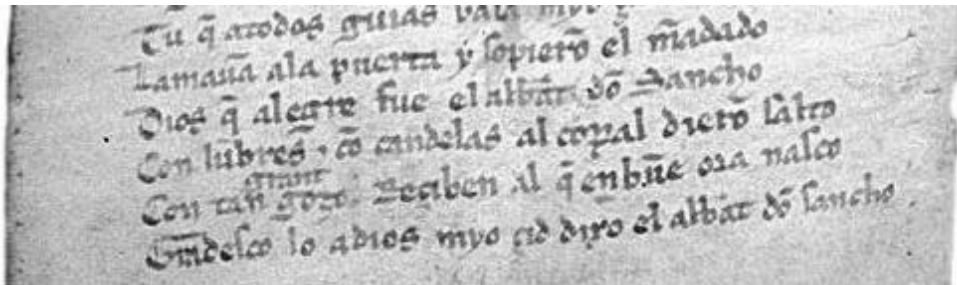 Tu q̃ atodos guias vala myo
Lamauã ala puerta y sopierõ el mãdado
Dios q̃ alegre fue el albãt dõ Sancho
Con lũbres ⁊ cõ candelas al corral dierõ salto
Con tan grant gozo Reçiben al q̃ enbuẽ ora nasco
Gradesco lo adios myo çid dixo el albãt dõ sancho